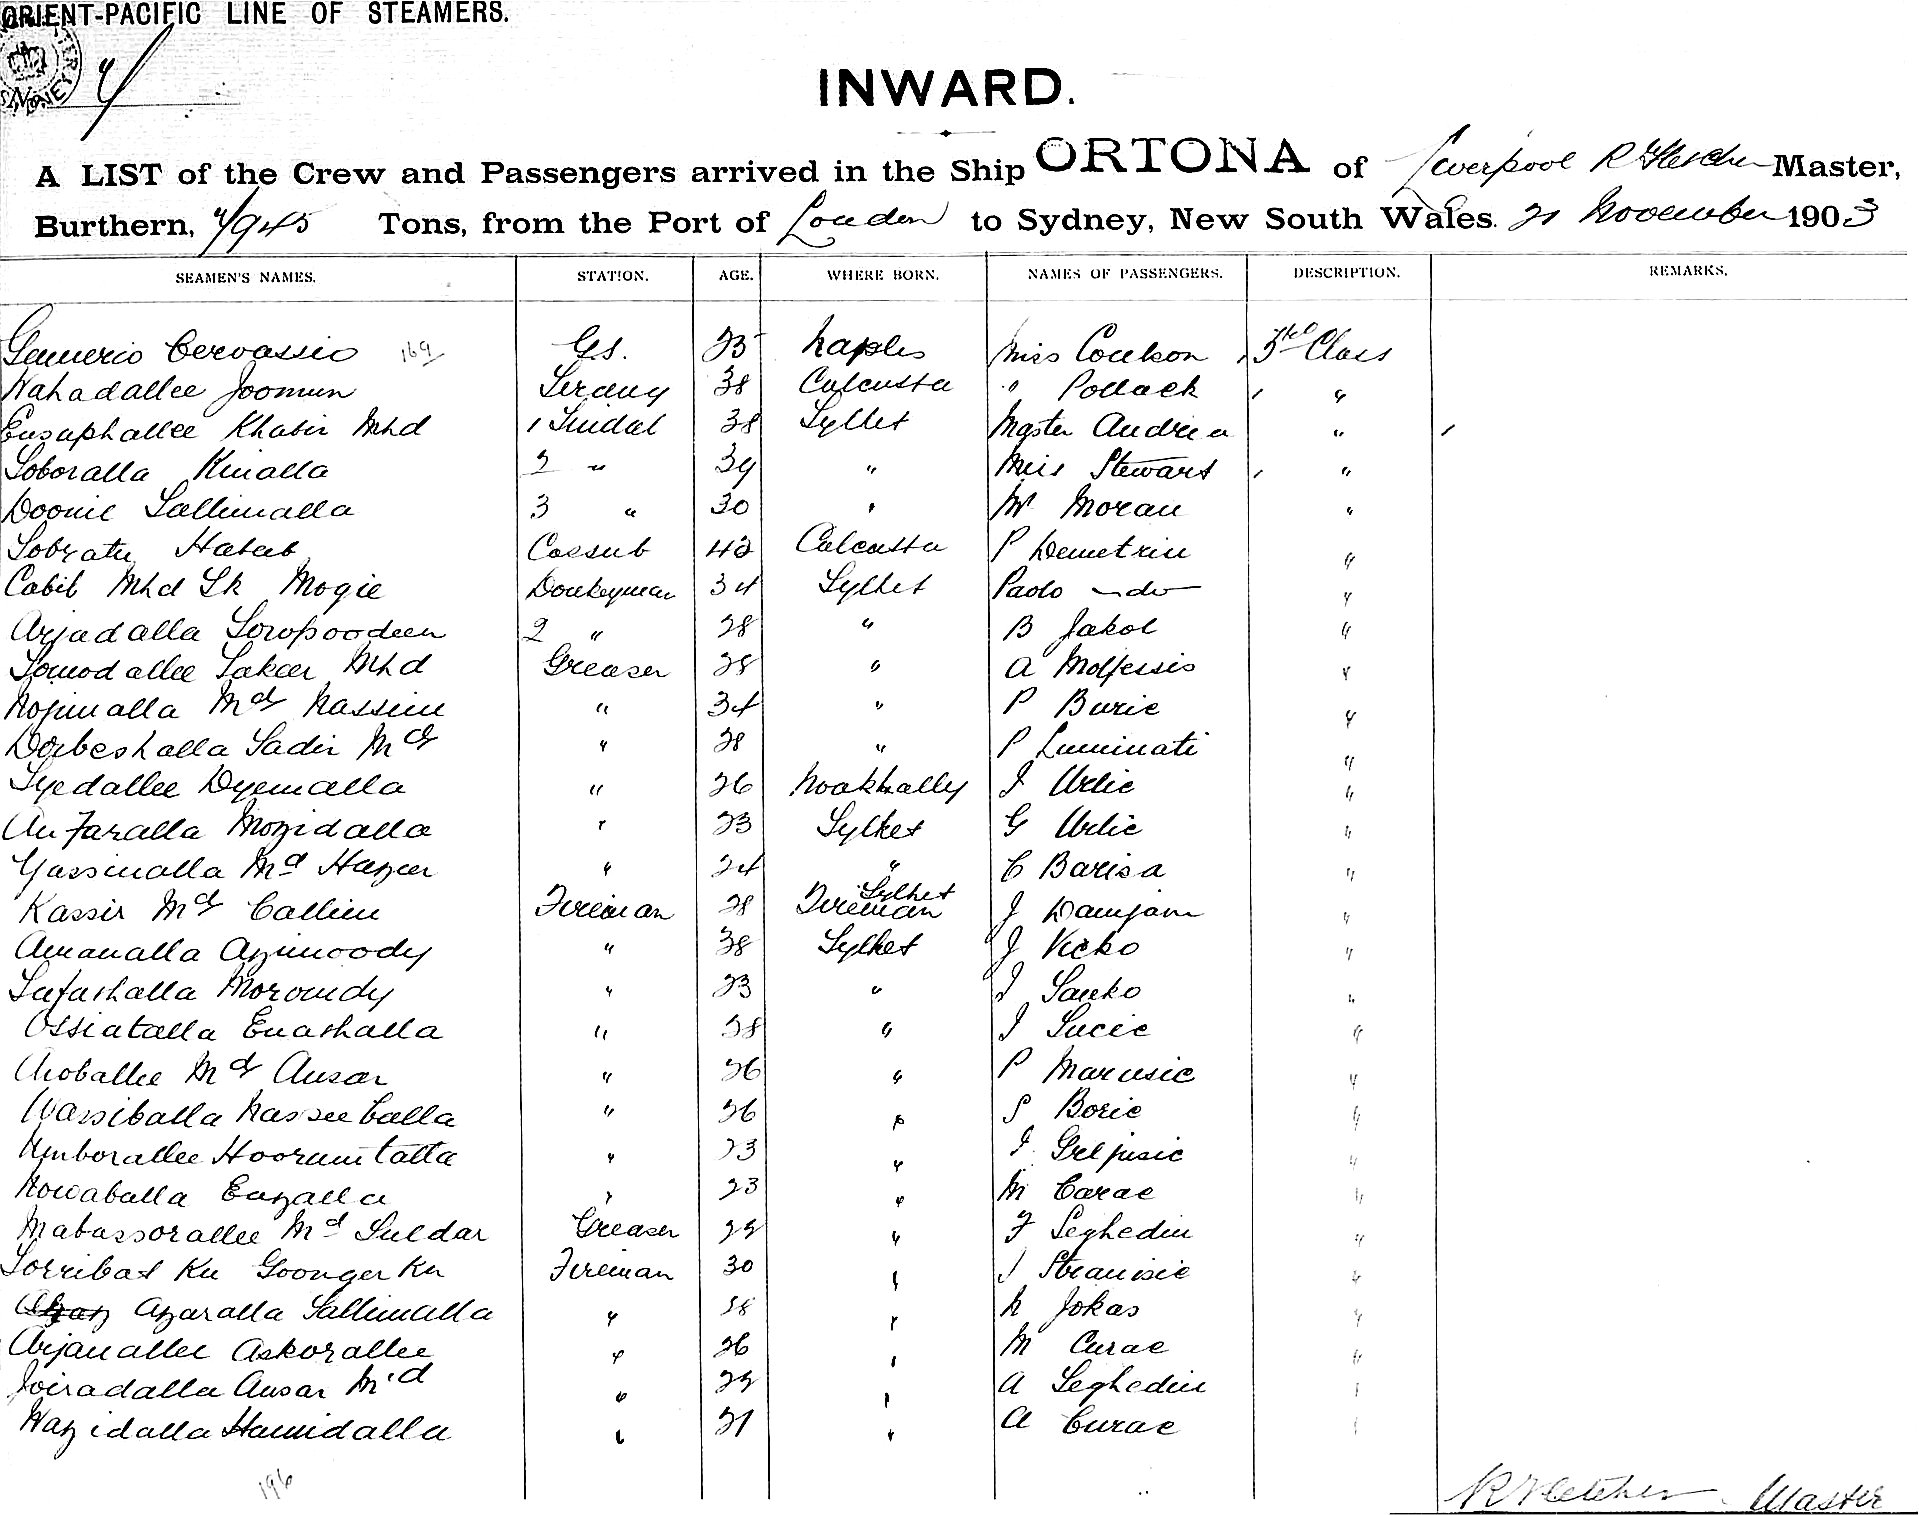 ORIENT-PACIFIC LINE OF STEAMERS.
INWARD.
A LIST of the Crew and Passengers arrived in the Ship ORTONA of Liverpool R Fletcher Master,
Burthern, 7/945 Tons, from the Port of London to Sydney, New South Wales. 21 November 1903
SEAMEN'S NAMES. STATION. AGE. WHERE BORN. NAMES OF PASSENGERS. DESCRIPTION. REMARKS.
Cervassio 169 Gs. 25 Naples Miss Coulson 3rd Class
Wahadallee Joomun Serang 38 Calcutta " Pollack "
Eusuphallee Khabir Mhd 1 Tindal 38 Sylhet Master Andrea "
Soboralla Kinalla 2 " 39 " Miss Stewart "
Doomie Sallimalla 3 " 30 " Mr Moran "
Sobratu Hatab Cassub 42 Calcutta P Demetriu "
Cabil Mhd Sk Mogie Donkeyman 34 Sylhet Paolo do "
Arjadalla Soropoodeen 2 " 28 " B Jakol "
Somodallee Sakeer Mhd Greaser 28 " A Molfessis "
Nojimalla Md Nassim " 34 " P Buric "
Dorbeshalla Sadir Md " 28 " P Luminati "
Syedallee Dyemalla " 26 Noakhally I Urlic "
Anfaralla Mozidalla " 23 Sylhet G Urlic "
Yassinalla Md Hazeer " 24 " C Barisa "
Kassir Md Callim Fireman 28 Fireman Sylhet J Damjani "
Amanalla Azimoody " 38 Sylhet J Vicko "
Safathalla Moroudy " 23 " I Sanko "
Ossiatalla Enathalla " 28 " I Lucic "
Aroballee Md Ansar " 26 " P Marusic "
Wassiballa Nasseeballa " 26 " S Boric "
Umborallee Hoorumtalla " 23 " I Grljusic "
Nowaballa Eazalla " 23 " M Carac "
Mabassorallee Md Suldar Greaser 29 " F Seghedin "
Sorribat Ku Goonger Ku Fireman 30 " I Straunsie "
Azaralla Sallimalla " 28 " N Jokas "
Arjanallee Askorallee " 26 " M Curac "
Joiradalla Ansar Md " 29 " A Seghedin "
Wazidalla Hamidalla " 21 " A Curac "
196
R Fletcher Master